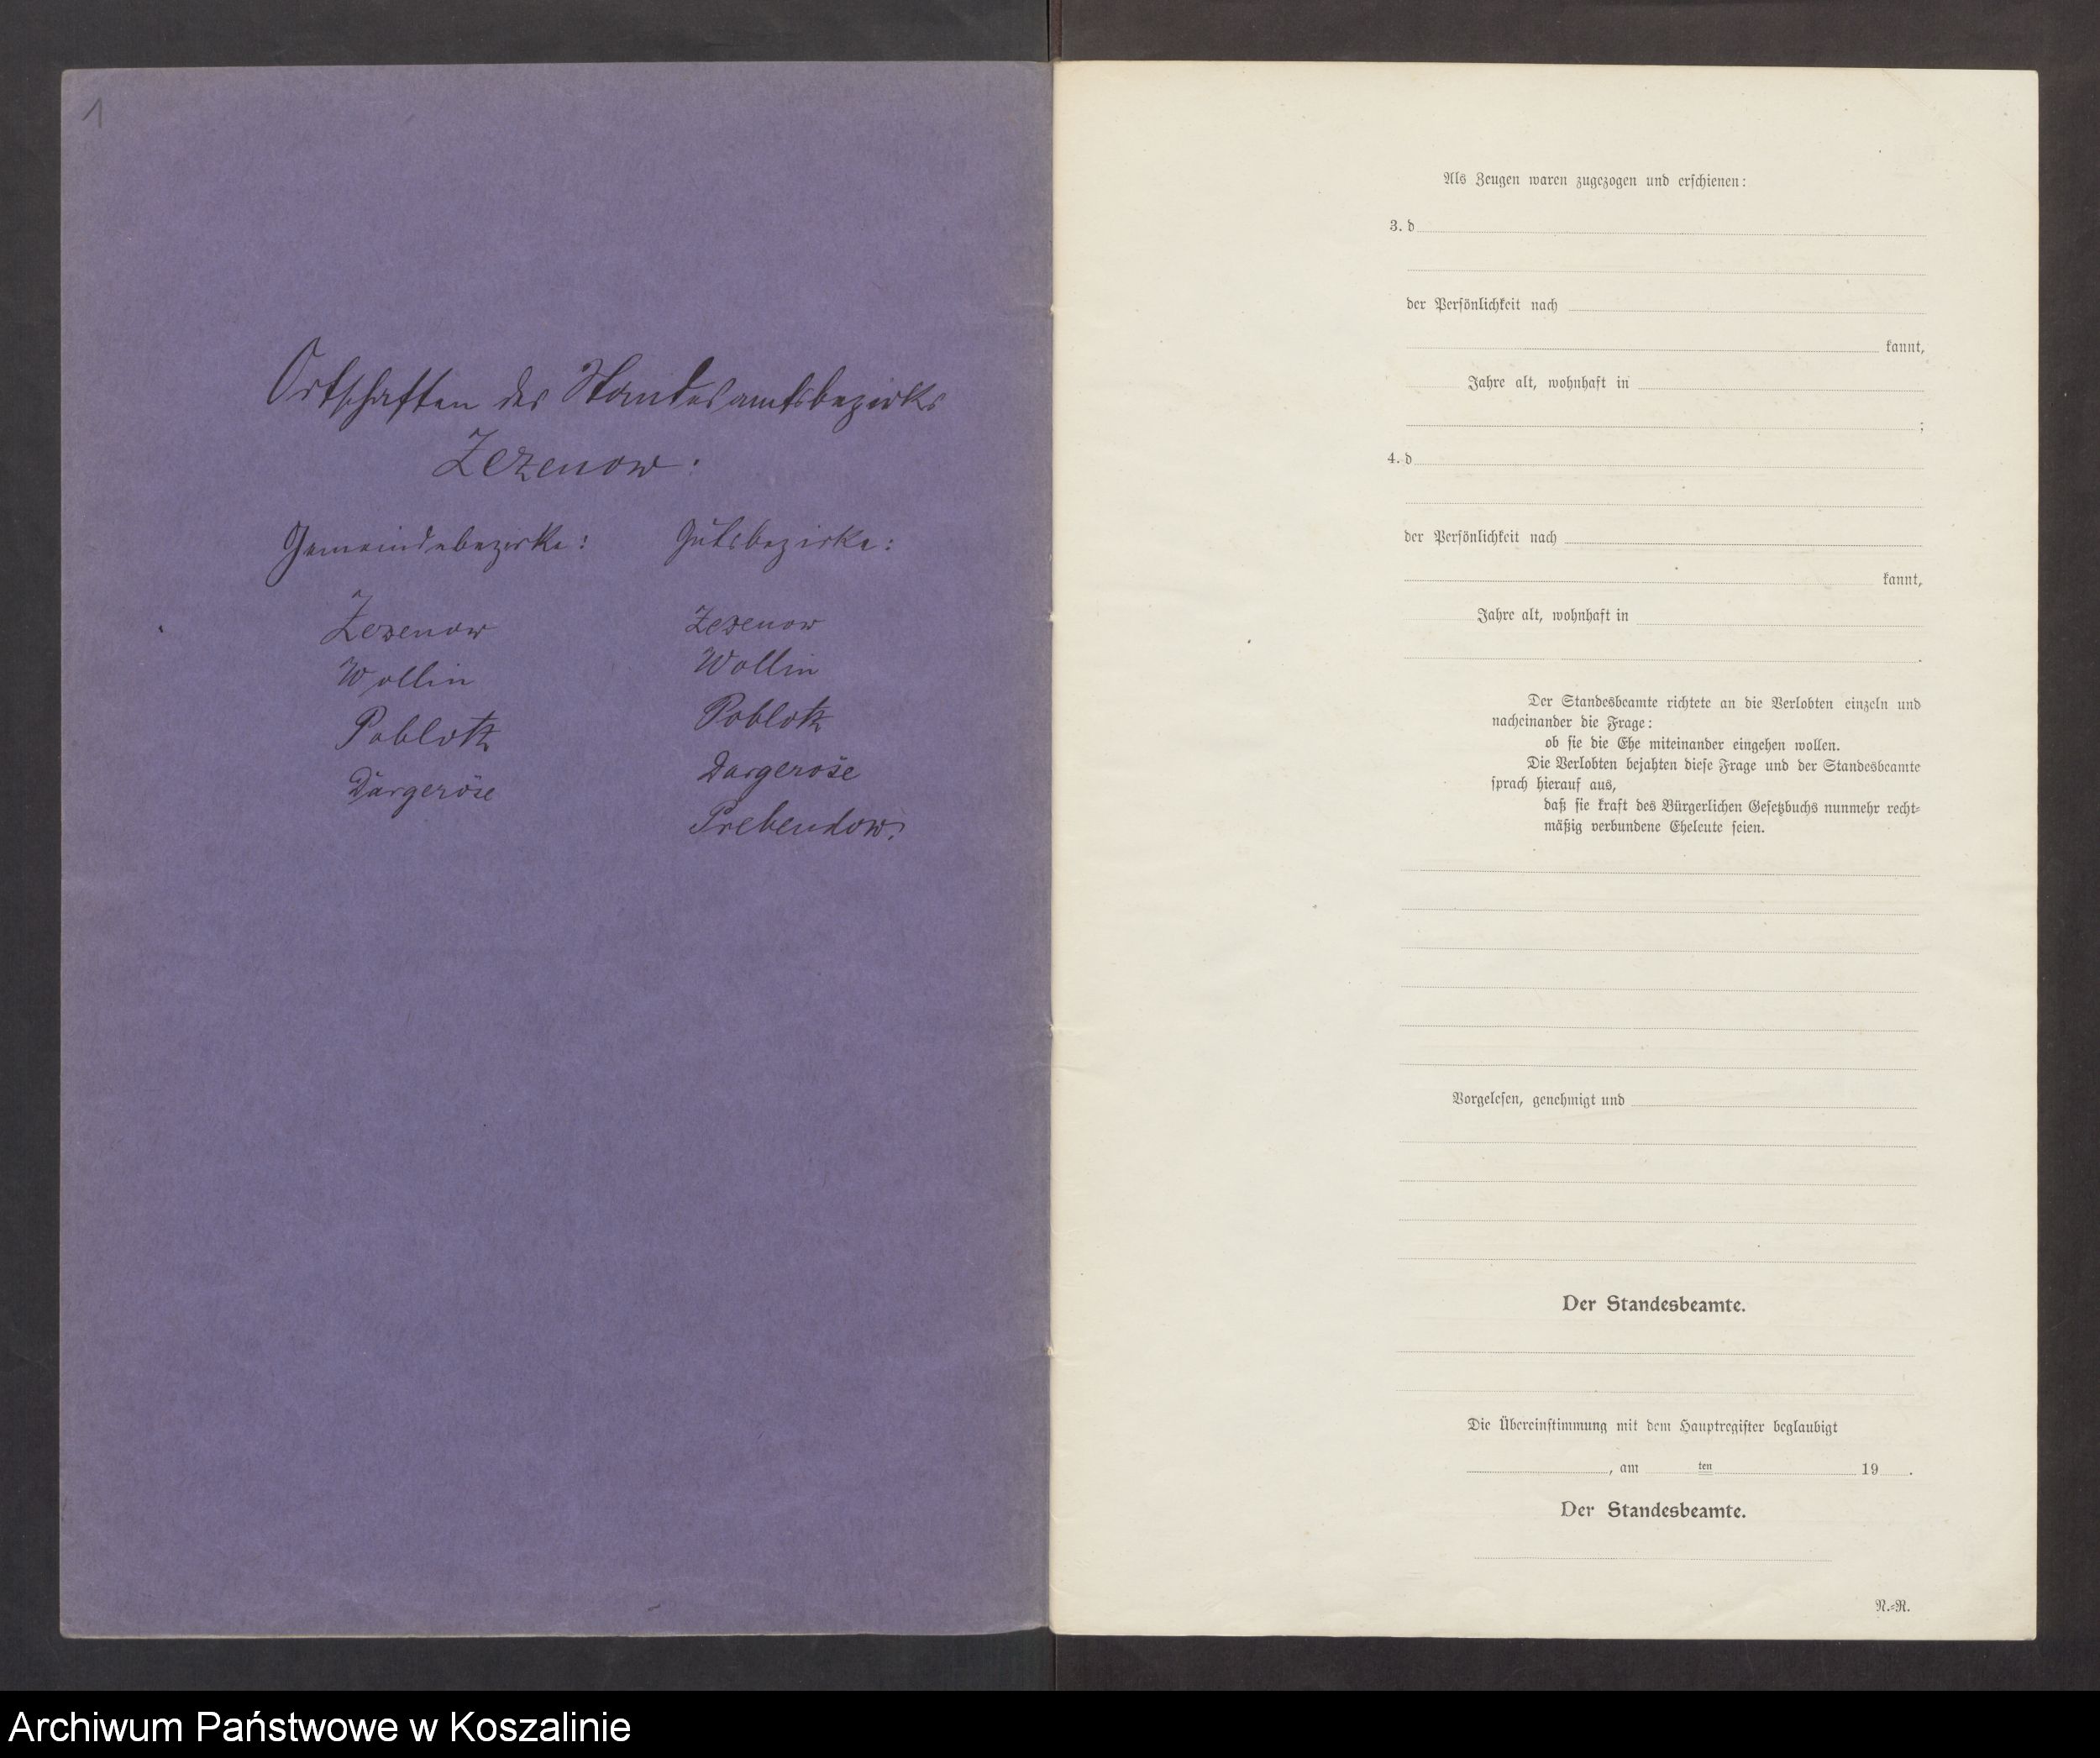 1
Ortschaften des Standesamtsbezirks
Zezenow.
Gemeindebezirke:
Zezenow
Wollin
Poblotz
Dargeröse
Gutsbezirke:
Zezenow
Wollin
Poblotz
Dargeröse
Prebendow.
Als Zeugen waren zugezogen und erschienen:
3. d
der Persönlichkeit nach
kannt,
Jahre alt, wohnhaft in
;
4. d
der Persönlichkeit nach
kannt,
Jahre alt, wohnhaft in
.
Der Standesbeamte richtete an die Verlobten einzeln und
nacheinander die Frage:
ob sie die Ehe miteinander eingehen wollen.
Die Verlobten bejahten diese Frage und der Standesbeamte
sprach hierauf aus,
daß sie kraft des Bürgerlichen Gesetzbuchs nunmehr recht-
mäßig verbundene Eheleute seien.
Vorgelesen, genehmigt und
Der Standesbeamte.
Die Übereinstimmung mit dem Hauptregister beglaubigt
, am ten 19 .
Der Standesbeamte.
N.-R.
Archiwum Państwowe w Koszalinie